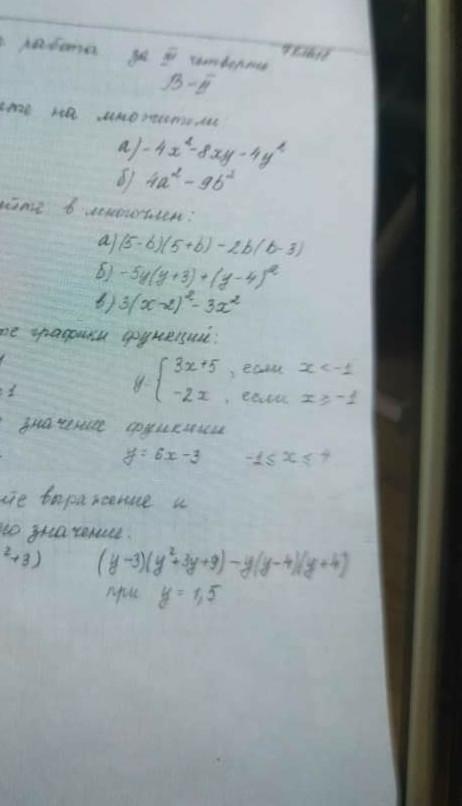 работа за III четверть
В-II
на множители:
а) -4x²-8xy-4y²
б) 4a²-9b²
в многочлен:
а) (5-b)(5+b)-2b(b-3)
б) -5y(y+3)+(y-4)²
в) 3(x-2)²-3x²
графики функций:
y= { 3x+5, если x<-1
-2x, если x≥-1
значение функции
y=6x-3 -1≤x≤4
выражение и
значение.
²+3) (y-3)(y²+3y+9)-y(y-4)(y+4)
при y=1,5